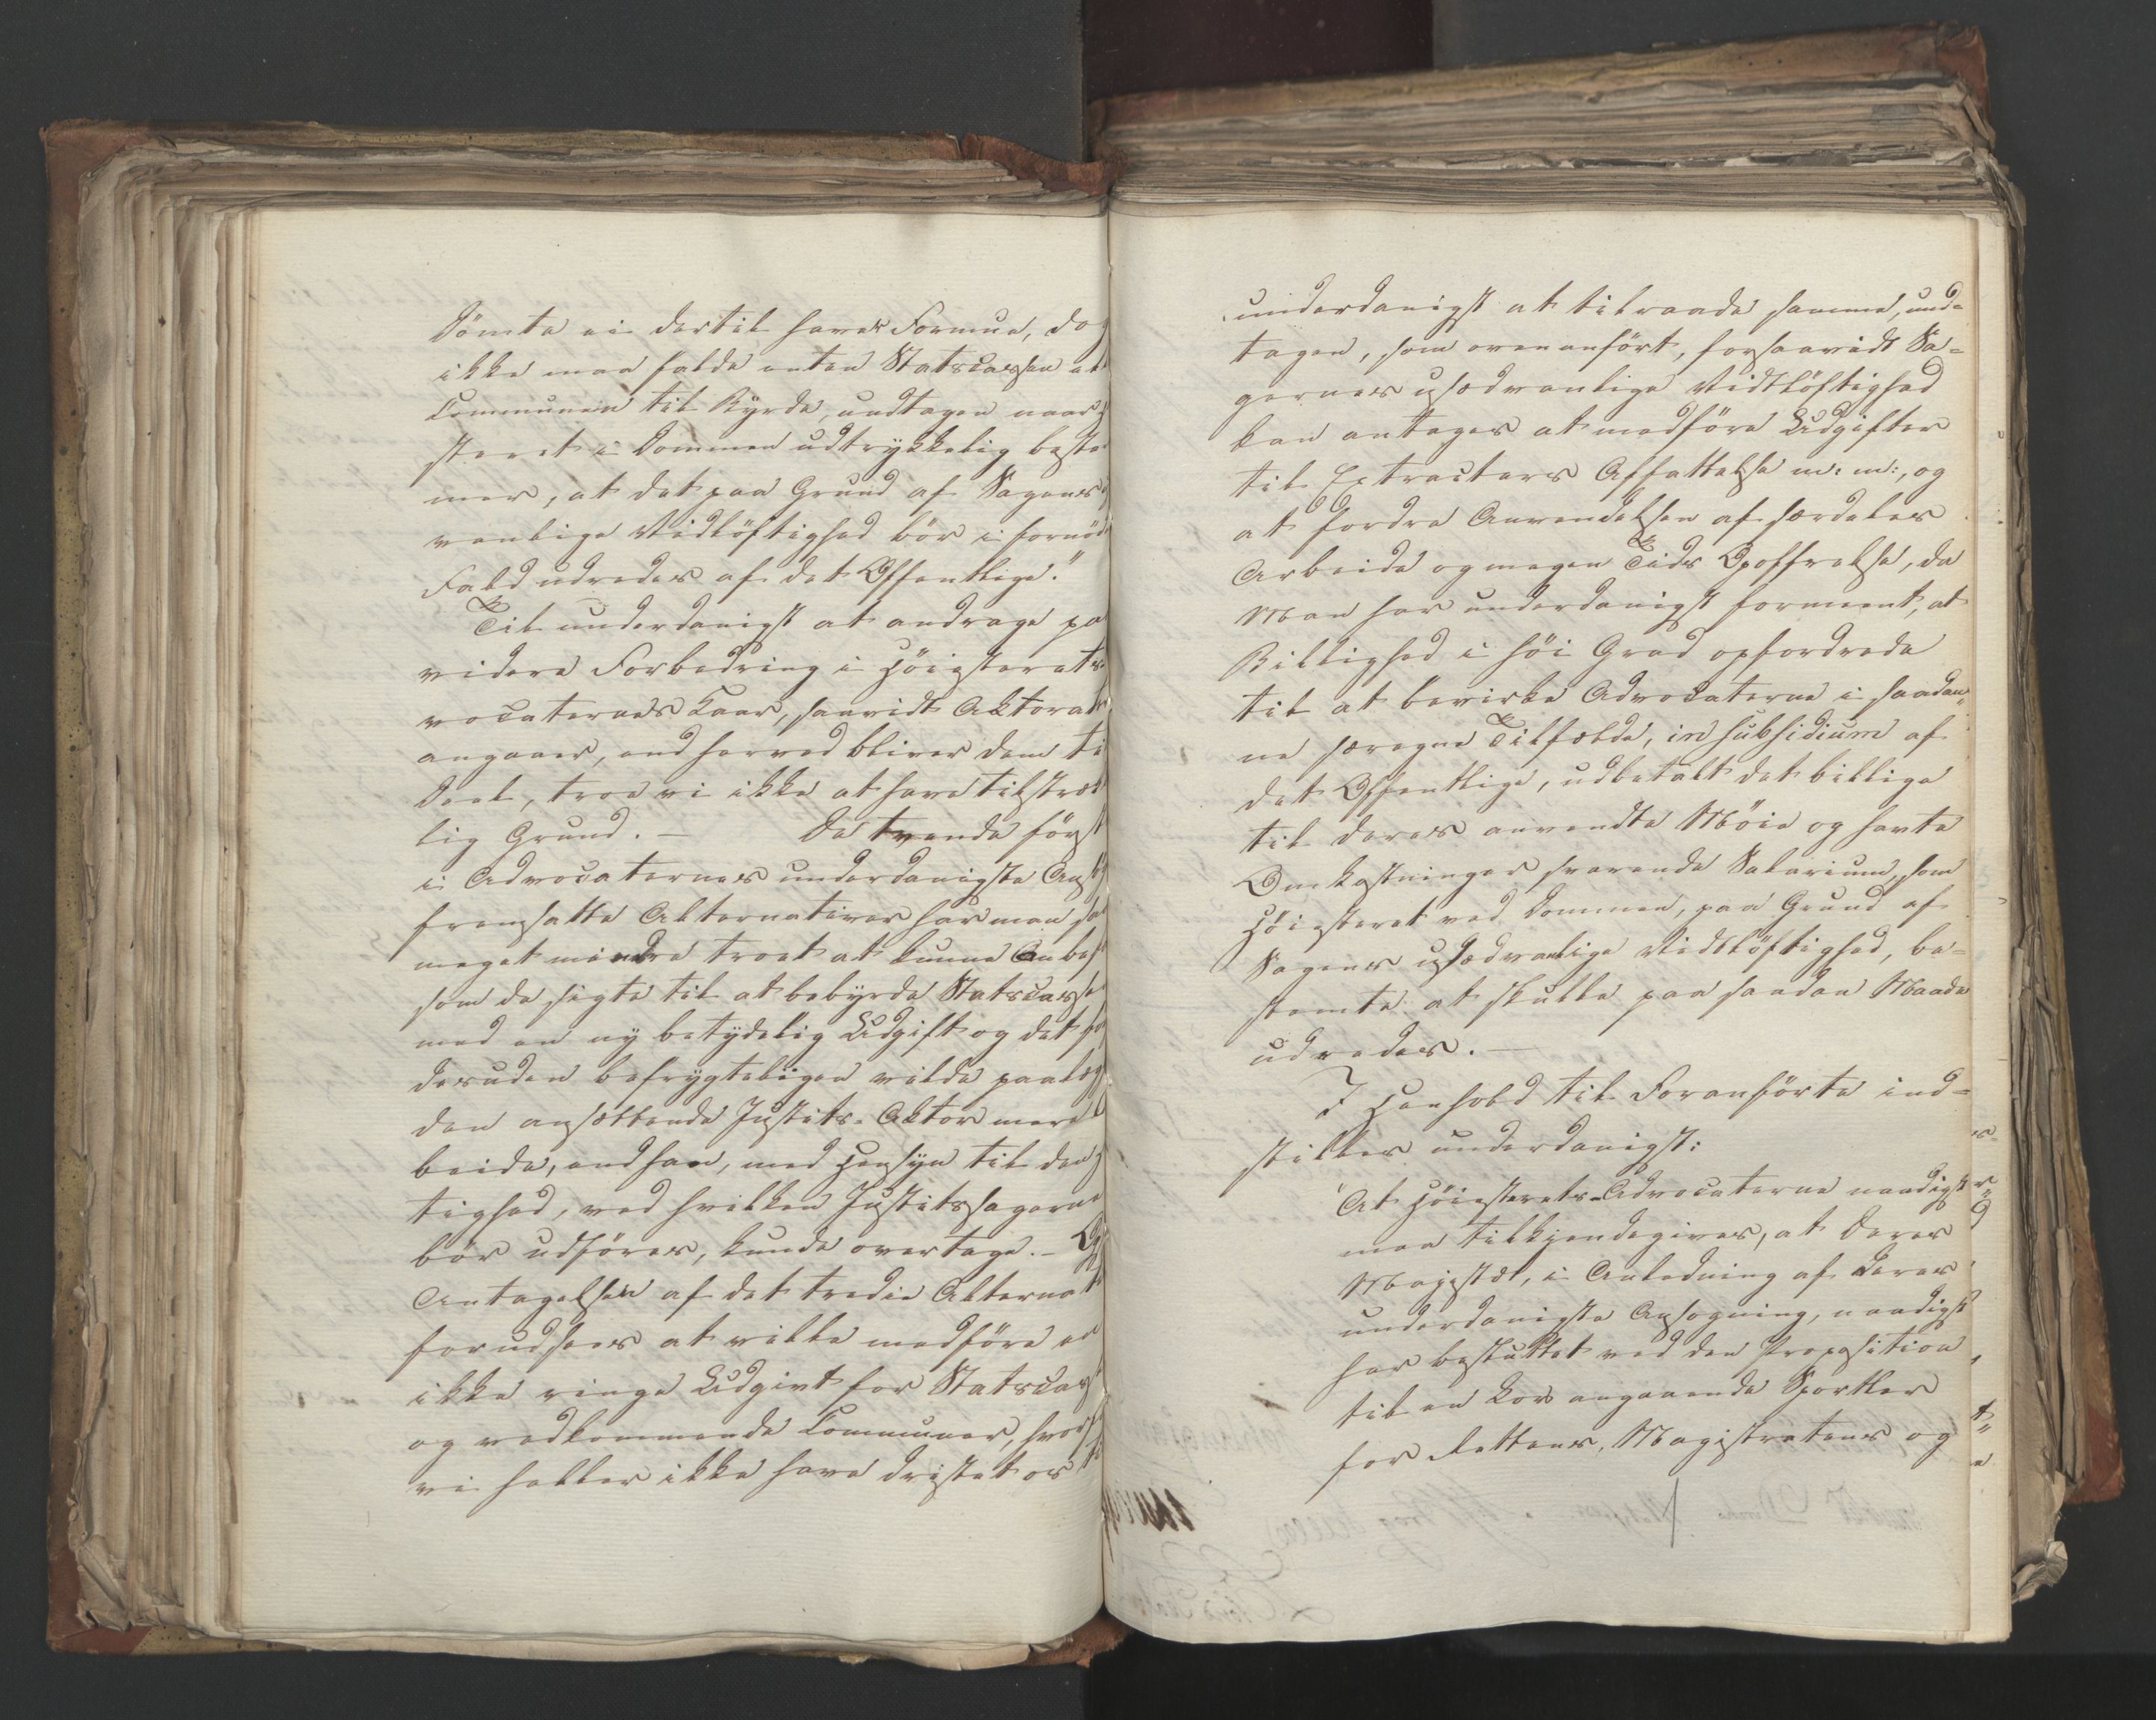 Dömte ei dertil haver Formue, dog
ikke maa falde enten Statscassen el
Communen til Byrde, undtagen naar
steret i Dommen udtrykkelig beste
mer, at det paa Grund af Sagens
vanlige Vidtløftighed bör i fornöd
Fald udredes af det Offentlige."
Til underdanigst at andrage pa
videre Forbedring i Höiesterets
vocaternes Kaar, saavidt Aktorat
angaaer, end herved bliver dem ti
Deel, troe vi ikke at have tilstræk
lig Grund. — De tvende först
i Advocaternes underdanigste Ans
fremsatte Alternativer har man saa
meget mindre troet at kunne Anbef
som de sigte til at bebyrde Statscasse
med en ny betydelig Udgift og det fo
desuden befrygteligen vilde paalæg
den ansættende Justits-Aktor mere
beide, end han, med Hensyn til den
tighed, ved hvilken Justitssagerne
bör udföres, kunde overtage. — Og
Antagelsen af det tredie Alternat
forudsees at ville medföre en
ikke ringe Udgivt for Statscass
og vedkommende Communer, hvor
vi heller ikke have dristet os
underdanigst at tilraade samme, und=
tagen, som ovenanfört, forsaavidt Sa=
gernes usædvanlige Vidtlöftighed
kan antages at medföre Udgifter
til Extracters Affattelse m: m:, og
at fordre Anvendelsen af særdeles
Arbeide og megen Tids Opoffrelse, da
Man har underdanigst formeent, at
Billighed i höi Grad opfordrede
til at bevirke Advocaterne i saadan=
ne særegne Tilfælde, in subsidium af
det Offentlige, udbetalt det billige
til deres anvendte Möie og havte
Omkostninger svarende Salarium, som
Höiesteret ved Dommen, paa Grund af
Sagens usædvanlige Vidtlöftighed, be=
stemte at skulle paa saadan Maade
udredes. —
I Henhold til Foranförte ind=
stilles underdanigst:
"At Höiesterets-Advocaterne naadigst
maa tilkjendegives, at Deres
Majestæt, i Anledning af deres
underdanigste Ansögning, naadigst
har besluttet ved den Proposition
til en Lov angaaende Sportler
for Rettens, Magistratens og